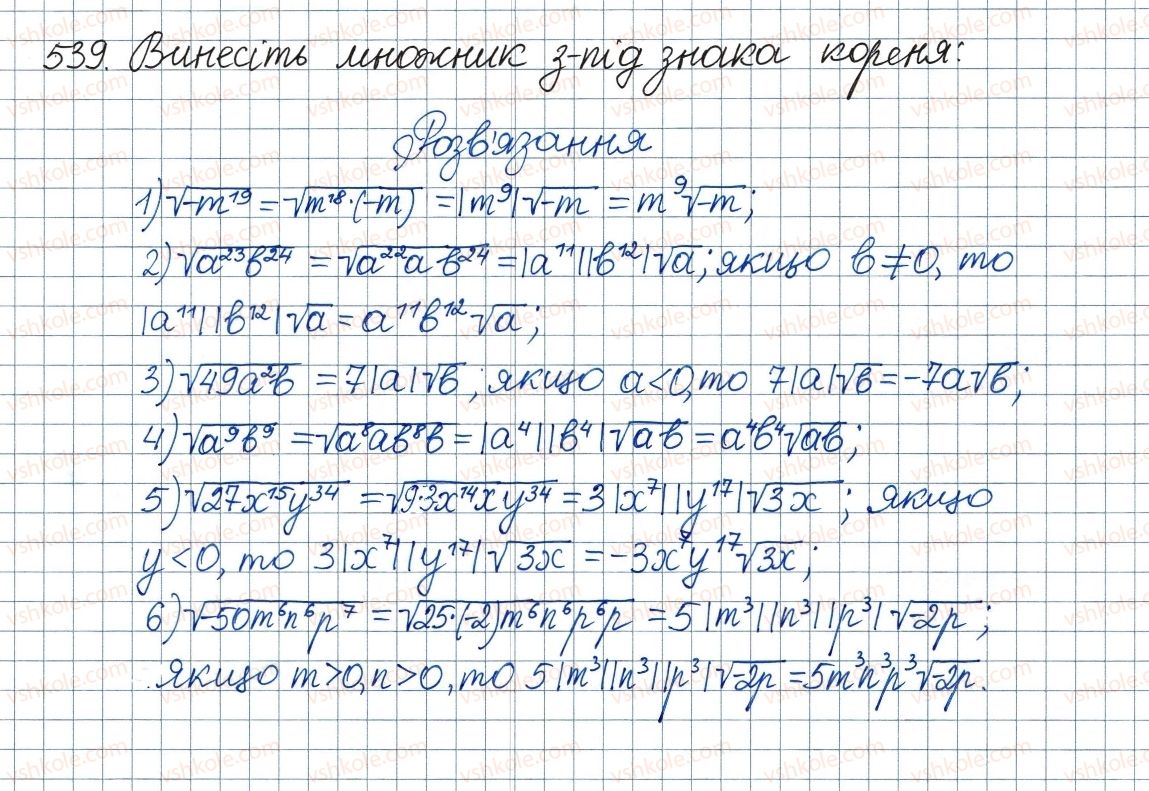 539. Винесіть множник з-під знака кореня:
Розв'язання
1) √-m¹⁹ = √m¹⁸·(-m) = |m⁹|√-m = m⁹√-m;
2) √a²³b²⁴ = √a²²a b²⁴ = |a¹¹||b¹²|√a; якщо b≠0, то
|a¹¹||b¹²|√a = a¹¹b¹²√a;
3) √49a²b = 7|a|√b; якщо a<0, то 7|a|√b = -7a√b;
4) √a⁹b⁹ = √a⁸ab⁸b = |a⁴||b⁴|√ab = a⁴b⁴√ab;
5) √27x¹⁵y³⁴ = √9·3x¹⁴xy³⁴ = 3|x⁷||y¹⁷|√3x; якщо
y<0, то 3|x⁷||y¹⁷|√3x = -3x⁷y¹⁷√3x;
6) √-50m⁶n⁶p⁷ = √25·(-2)m⁶n⁶p⁶p = 5|m³||n³||p³|√-2p;
якщо m>0, n>0, то 5|m³||n³||p³|√-2p = 5m³n³p³√-2p.